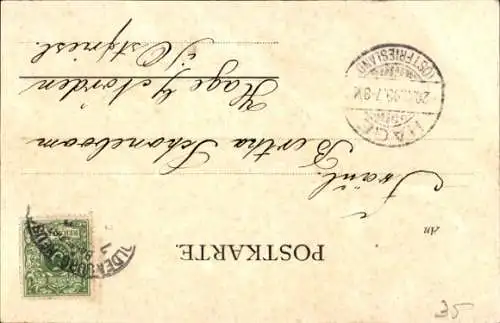 POSTKARTE.
An
Fräul.
Bertha Schoneboom
Hage b/ Norden
i/ Ostfriesl.
HAGE
(OSTFRIESLAND)
OLDENBURG
35